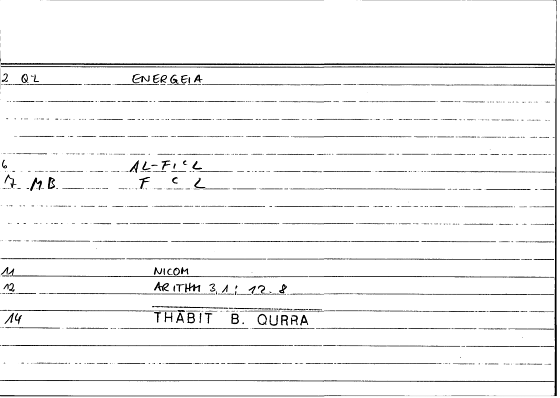 2 QL ENERGEIA
6 AL-FIᶜL
17 MB F ᶜ L
11 NICOM
12 ARITHM 3,1; 12.8
14 THĀBIT B. QURRA